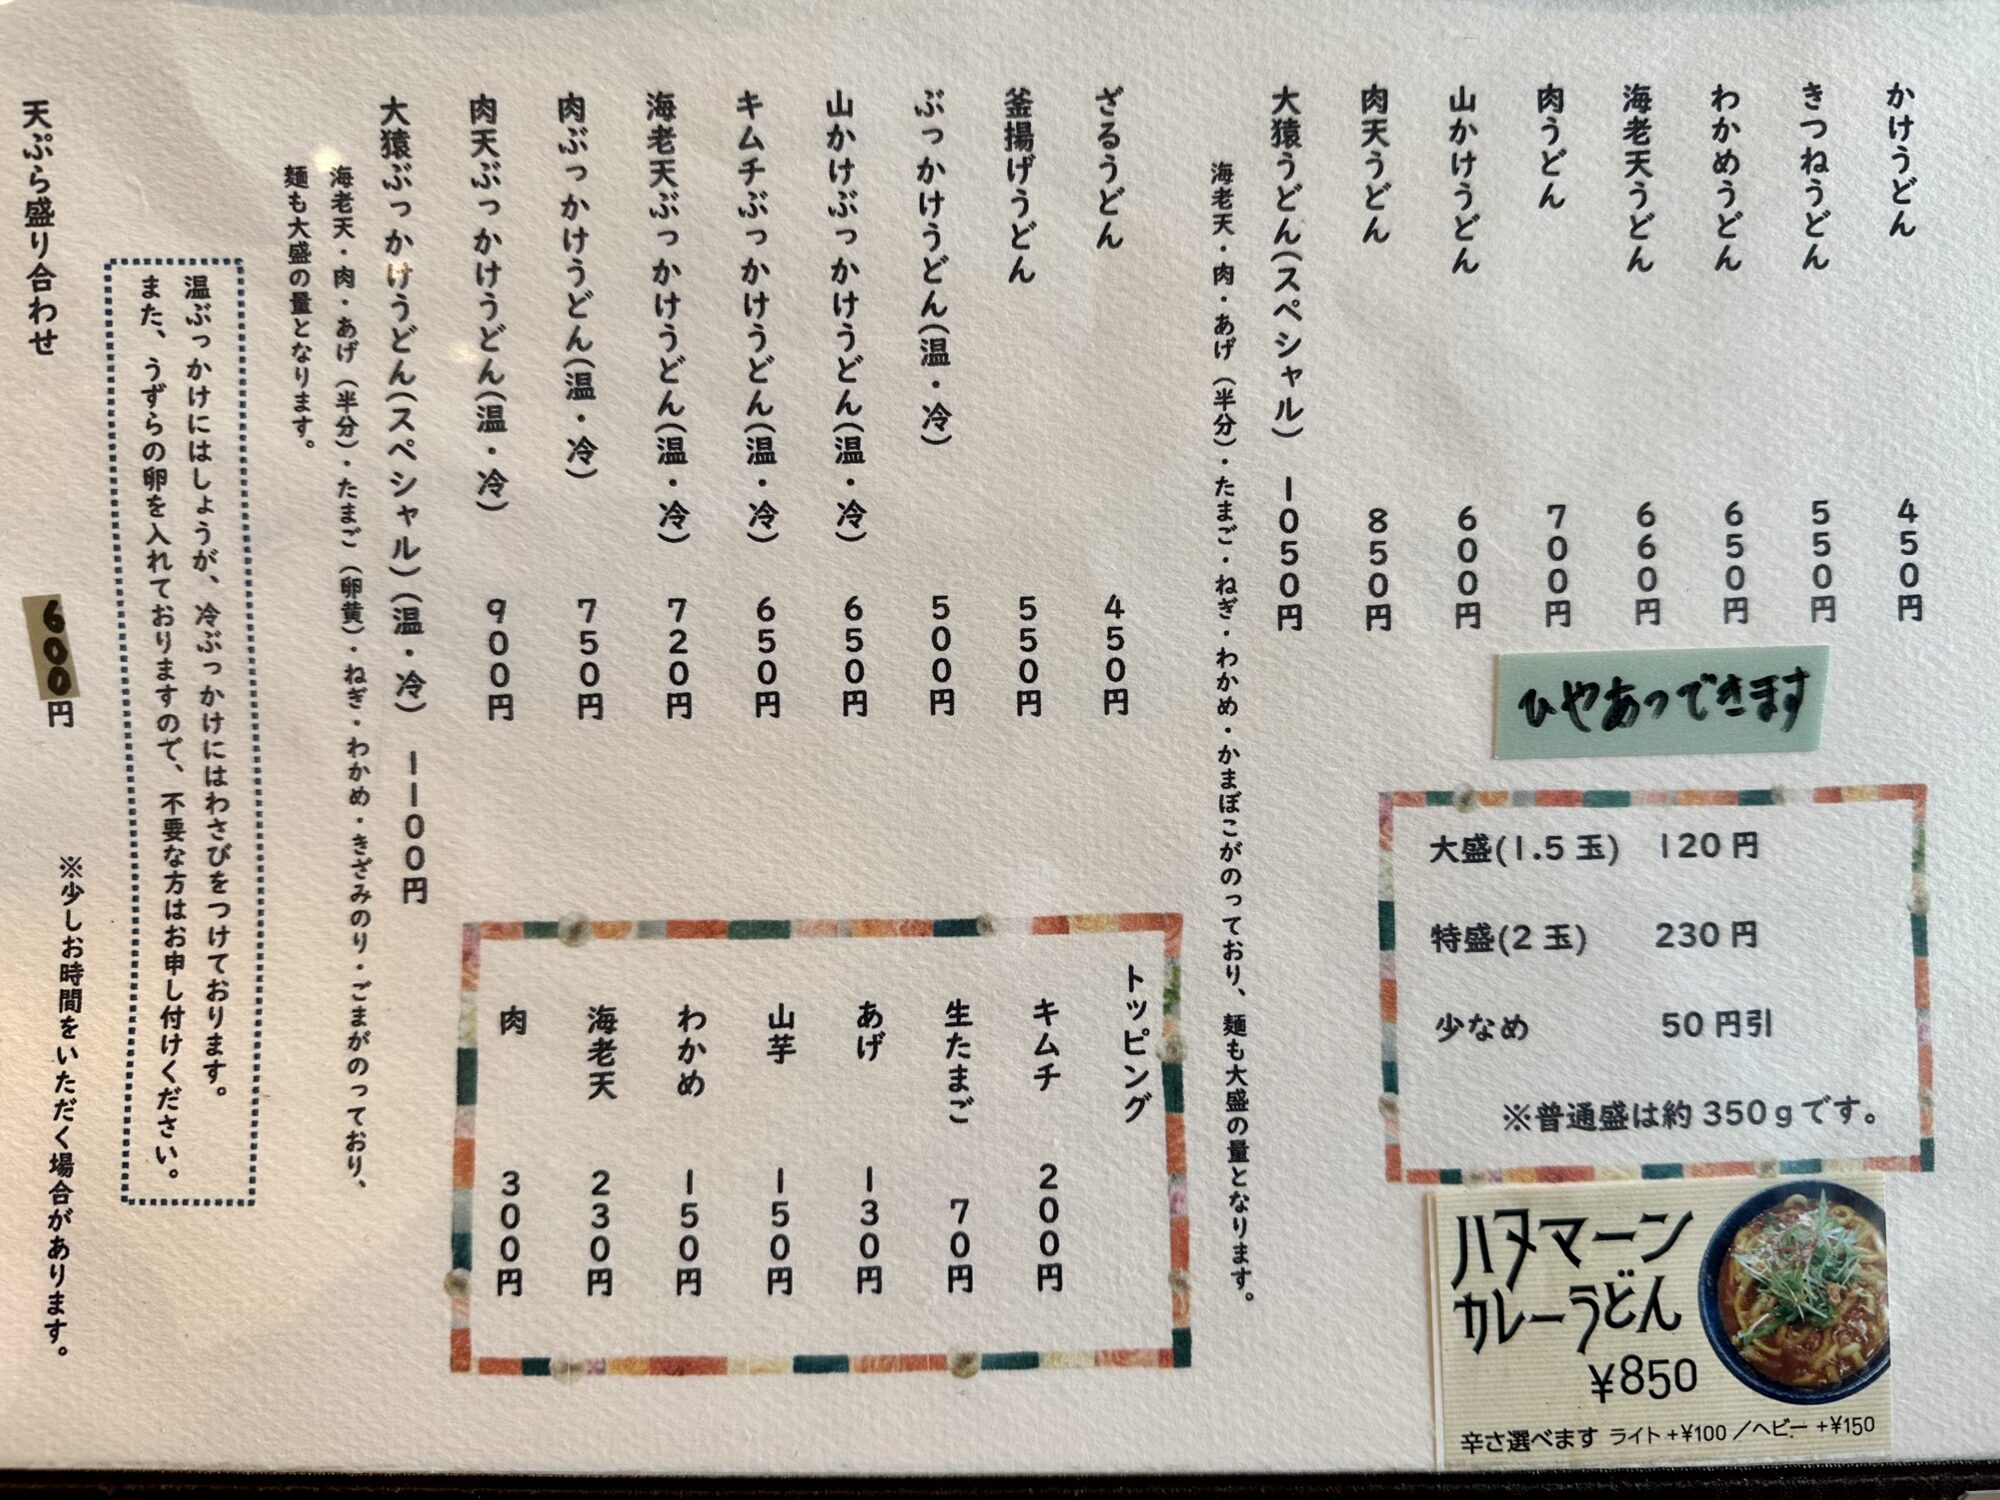 かけうどん 450円
きつねうどん 550円
わかめうどん 650円
海老天うどん 660円
肉うどん 700円
山かけうどん 600円
肉天うどん 850円
大猿うどん(スペシャル) 1050円
海老天・肉・あげ(半分)・たまご・ねぎ・わかめ・かまぼこがのっており、麺も大盛の量となります。
ひやあつできます
大盛(1.5玉) 120円
特盛(2玉) 230円
少なめ 50円引
※普通盛は約350gです。
ハヌマーン
カレーうどん
¥850
辛さ選べます ライト+¥100/ヘビー+¥150
ざるうどん 450円
釜揚げうどん 550円
ぶっかけうどん(温・冷) 500円
山かけぶっかけうどん(温・冷) 650円
キムチぶっかけうどん(温・冷) 650円
海老天ぶっかけうどん(温・冷) 720円
肉ぶっかけうどん(温・冷) 750円
肉天ぶっかけうどん(温・冷) 900円
大猿ぶっかけうどん(スペシャル)(温・冷) 1100円
海老天・肉・あげ(半分)・たまご(卵黄)・ねぎ・わかめ・きざみのり・ごまがのっており、
麺も大盛の量となります。
トッピング
キムチ 200円
生たまご 70円
あげ 130円
山芋 150円
わかめ 150円
海老天 230円
肉 300円
温ぶっかけにはしょうが、冷ぶっかけにはわさびをつけております。
また、うずらの卵を入れておりますので、不要な方はお申し付けください。
天ぷら盛り合わせ 600円 ※少しお時間をいただく場合があります。